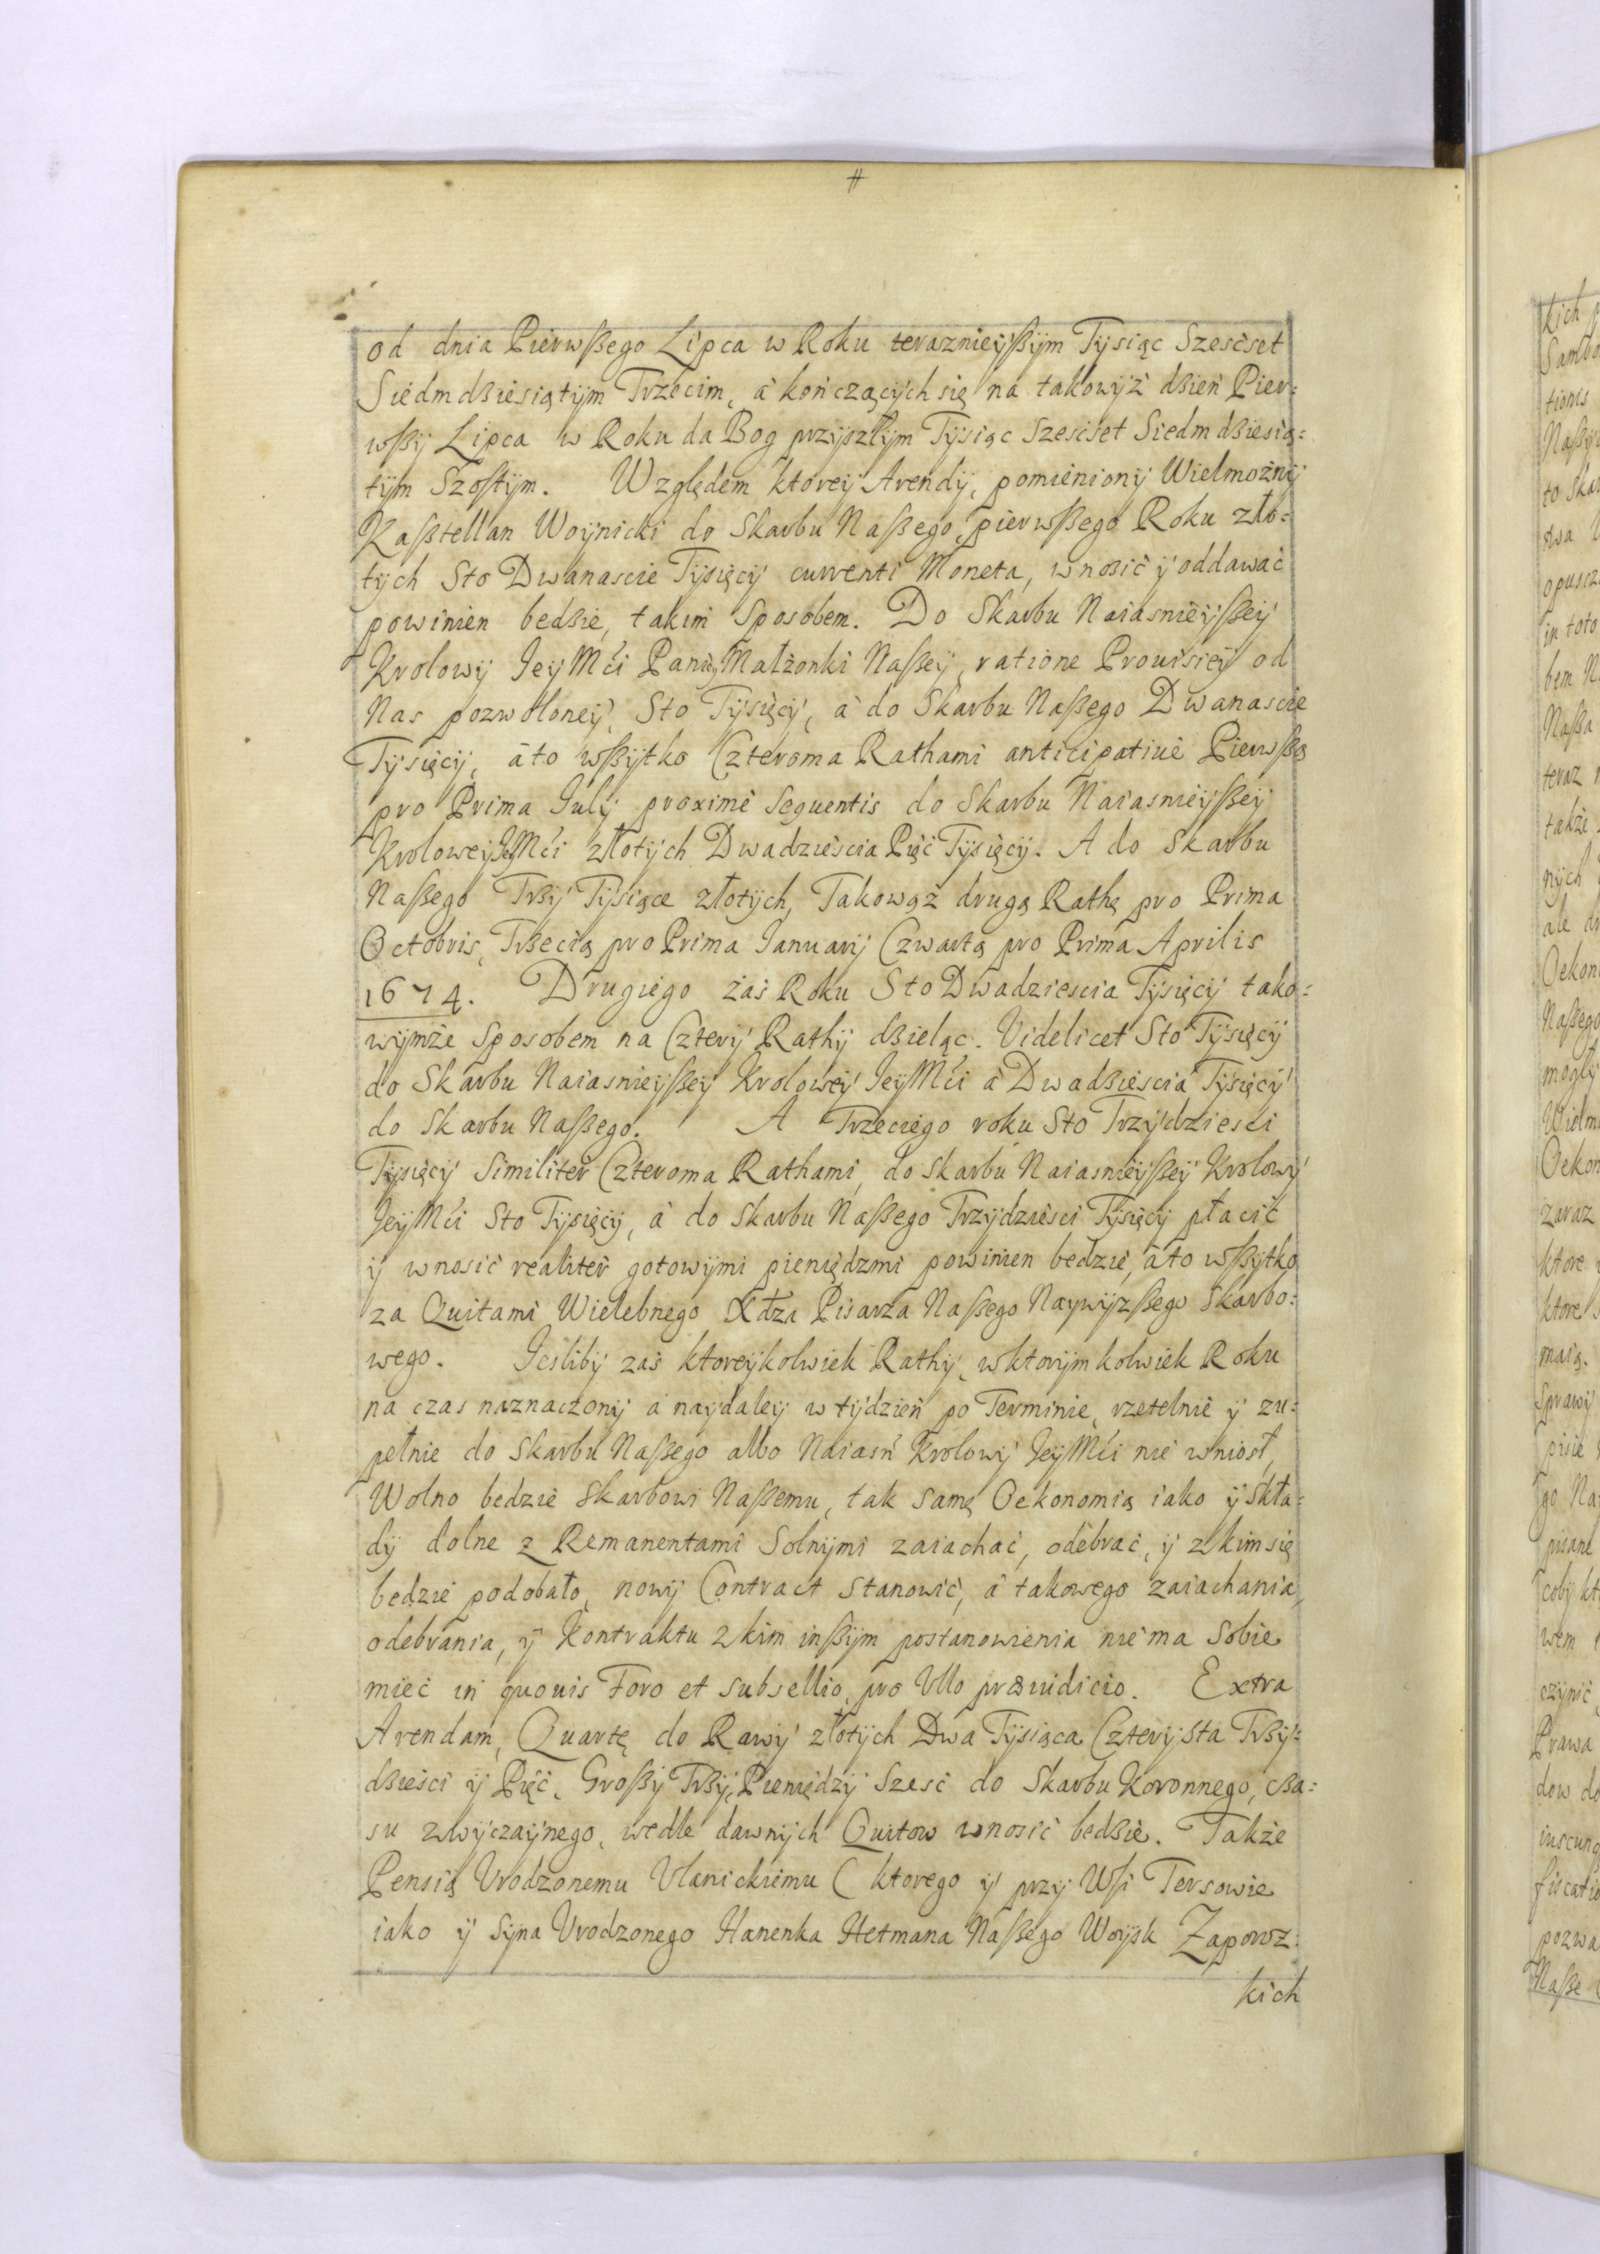 #
od dnia Pierwßego Lipca w Roku teraznieyßym Tysiąc Szescset
Siedmdziesiątym Trzecim, à kończących się na takowyż dzien Pier=
wßy Lipca w Roku da Bog przyszłym Tysiąc Szescset Siedmdziesią=
tym Szostym. Względem ktorey Arendy, pomieniony Wielmożny
Kaßtellan Woynicki do Skarbu Naßego, pierwßego Roku zło=
tych Sto Dwanascie Tysięcy currenti Moneta, wnosić y oddawać
powinien bedzie, takim sposobem. Do Skarbu Naiasnieyßey
Krolowy JeyMći Paniey Małżonki Naßey, ratione Prouisiey od
Nas pozwoloney, Sto Tysięcy, à do Skarbu Naßego Dwanascie
Tysięcy, à to wßytko Czteroma Rathami anticipatiuè Pierwßą
pro Prima July proximè sequentis do Skarbu Naiasnieyßey
Krolowey JeyMći złotych Dwadziescia Pięć Tysięcy. A do Skarbu
Naßego Trzy Tysiące złotych, Takowąż drugą Rathę pro Prima
Octobris, Trzecią pro Prima Januarij Czwartą pro Prima Aprilis
1674. Drugiego zaś Roku Sto Dwadziescia Tysięcy tako=
wymże sposobem na Cztery Rathy dzieląc. Videlicet Sto Tysięcy
do Skarbu Naiasnieyßey Krolowey JeyMći à Dwadziescia Tysięcy
do Skarbu Naßego. A Trzeciego roku Sto Trzydziesci
Tysięcy Similiter Czteroma Rathami, do Skarbu Naiasnieyßey Krolowy
JeyMći Sto Tysięcy, à do Skarbu Naßego Trzydziesci Tysięcy płacić
y wnosić realiter gotowymi pieniędzmi powinien bedzie, à to wßytko
za Quitami Wielebnego Xdza Pisarza Naßego Naywyzßego Skarbo=
wego. Jesliby zaś ktoreykolwiek Rathy, wktorymkolwiek Roku
na czas naznaczony à naydaley w tydzień po Terminie, rzetelnie y zu=
pełnie do Skarbu Naßego albo Naiasń Krolowy JeyMći nie wniosł,
Wolno bedzie Skarbowi Naßemu, tak samę Oekonomią iako y Skła=
dy dolne z Remanentami Solnymi zaiachać, odebrać, y z kim się
bedzie podobało, nowy Contract stanowić, à takowego zaiachania,
odebrania, y Kontraktu z kim inßym postanowienia nie ma sobie
mieć in quouis Foro et subsellio, pro Vllo præiudicio. Extra
Arendam, Quartę do Rawy złotych Dwa Tysiąca Czterysta Trzy=
dziesci y Pięć, Großy Trzy, Pieniędzy Szesć do Skarbu Koronnego, cza=
su zwyczaynego, wedle dawnych Quitow wnosić bedzie. Także
Pensią Vrodzonemu Vlanickiemu ( ktorego y przy Wsi Tersowie
iako y Syna Vrodzonego Hanenka Hetmana Naßego Woysk Zaporoz=
kich